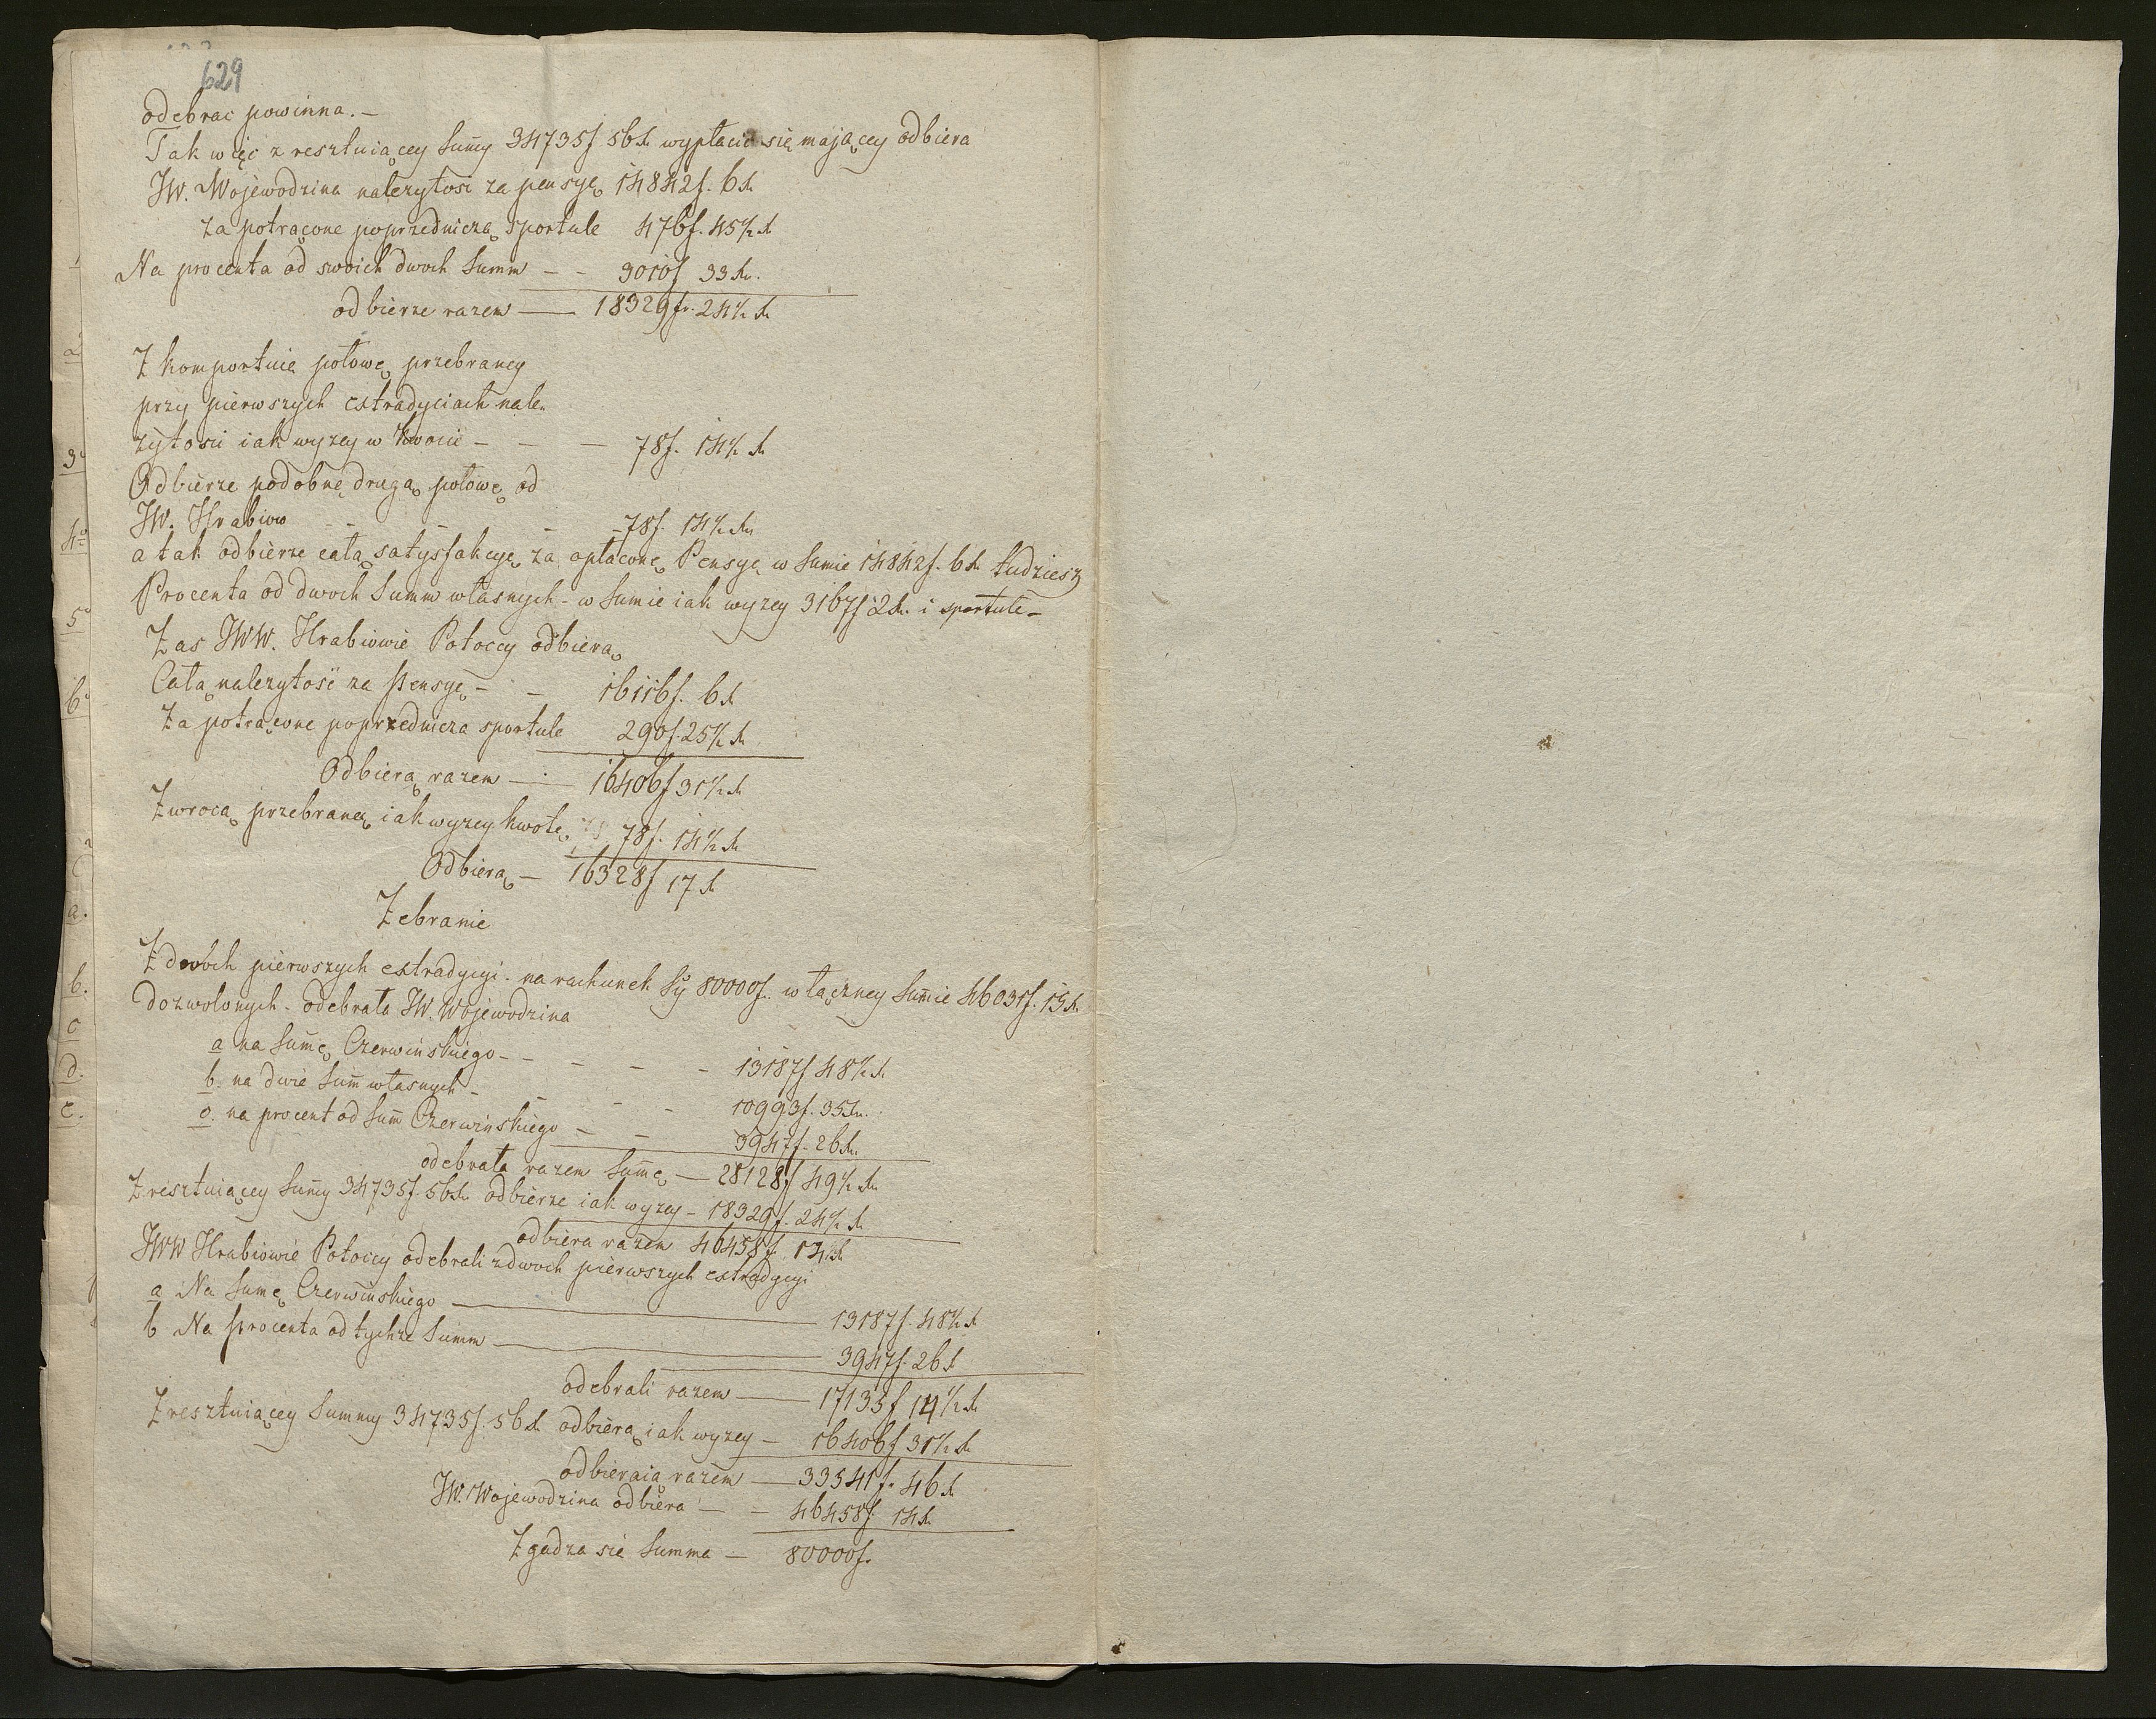 629
odebrac powinna. –
Tak więc z resztuiącey Summy 34735f 56 x wypłacić się maiącey odbiera
JW. Wojewodzina nalezytosc za pensyę 14842f. 6 x
za potrącone poprzedniczą sportule 476f. 45½ x
Na procenta od swoich dwoch Summ – – 3010f 33 x.
odbierze razem — 18329f. 24½ x
Z komportuie połowę przebraney
przy pierwszych extradyciach nale-
zytosci iak wyzey w kwocie – – – 78f. 14½ x
Odbierze podobnę drugą połowę od
JW. Hrabiow – – – 78f. 14½ x
a tak odbierze całą satysfakcyę za opłaconę Pensyę w Sumie 14842f. 6 x tudziesz
Procenta od dwoch Summ własnych – w Sumie iak wyzey 3167f 2 x. i sportule –
Zas JWW. Hrabiowie Potoccy odbierą
Całą nalezytość za Pensyę – – 16116f. 6 x
Za potrącone poprzednicza sportule 290f. 25½ x
Odbierą razem — 16406f 31½ x
Zwrocą przebraną iak wyzey kwotę 78f. 14½ x
Odbierą – 16328f 17 x
Zebranie
Z dwoch pierwszych extradycyi – na rachunek Sy 80000f. w łączney Summie 46031f. 15 x
dozwolonych – odebrała JW. Wojewodzina
a na Summę Czerwińskiego – – – – – 13187f 48½ x
b. na dwie Summ własnych – – – – 10993f. 35 x.
c. na procent od Summ Czerwińskiego – – 3947f. 26 x.
odebrała razem Summę — 28128f 49½ x
Z resztuiącey Summy 34735f. 56 x odbierze iak wyzey – 18329f. 24½ x
odbiera razem 46458f. 14 x
JWW Hrabiowie Potoccy odebrali z dwoch pierwszych extradycyi
a Na Sumę Czerwińskiego — 13187f. 48½ x
b Na procenta od tychze Summ — 3947f. 26 x
odebrali razem — 17135f 14½ x
Z resztuiącey Summy 34735f. 56 x odbierą iak wyzey – 16406f 31½ x
odbieraią razem — 33541f. 46 x
JW. Wojewodzina odbiera – – 46458f 14 x
Zgadza się Summa – 80000f.